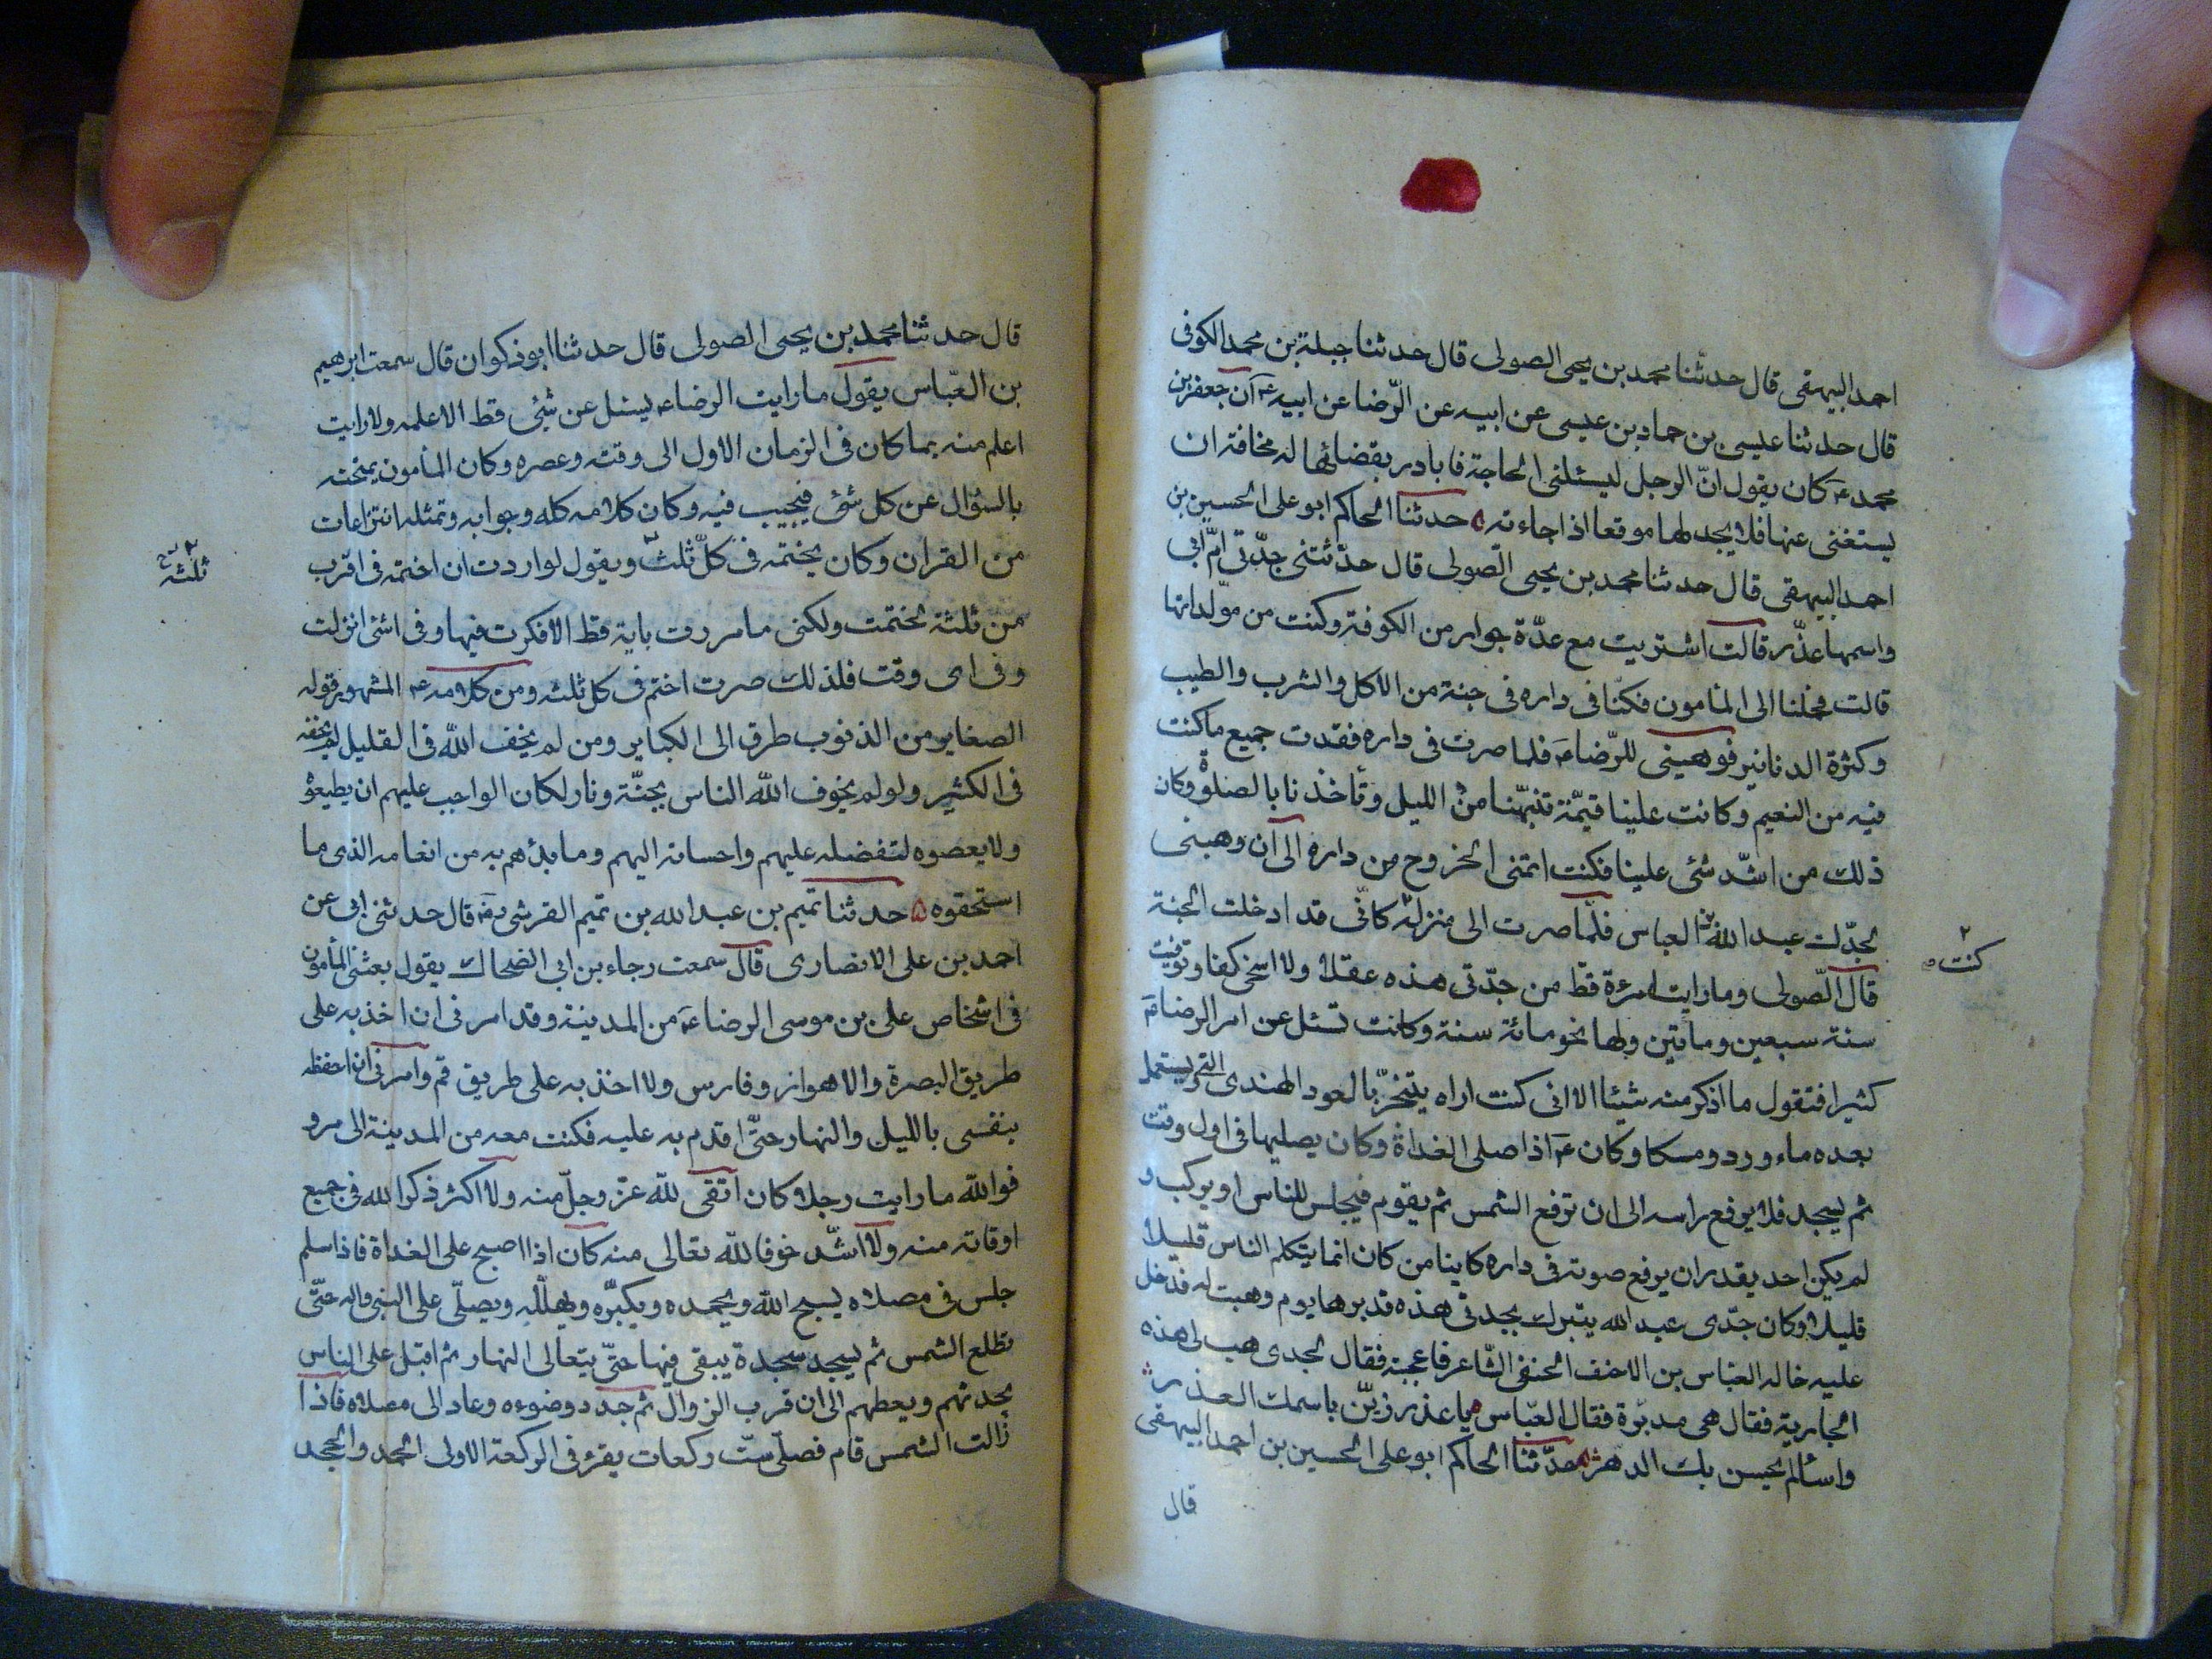 احمد البيهقى قال حدثنا محمد بن يحيى الصولى قال حدثنا جبلة بن محمد الكوفى
قال حدثنا عيسى بن حماد بن عيسى عن ابيه عن الرّضا عن ابيه ع آن جعفر بن
محمد ع كان يقول انّ الرجل ليسئلنى الحاجة فابادر بقضائها له مخافة ان
يستغنى عنها فلا يجد لها موقعا اذا جاءته ۵ حدثنا الحاكم ابو على الحسين بن
احمد البيهقى قال حدثنا محمد بن يحيى الصّولى قال حدّثتنى جدّتى امّ ابى
واسمها عذر قالت اشتريت مع عدّة جوار من الكوفة وكنت من مولّداتها
قالت فحملنا الى المأمون فكنا فى داره فى جنة من الاكل والشرب والطيب
وكثرة الدنانير فوهبنى للرّضا ع فلما صرت فى داره فقدت جميع ما كنت
فيه من النعيم وكانت علينا قيّمة تنبّهنا من الليل وتأخذنا بالصلوة وكان
ذلك من اشدّ شئى علينا فكنت اتمنى الخروج من داره الى آن وهبنى
لجدّك عبد الله بن العباس فلمّا صرت الى منزله كانّى قد ادخلت الجنة
كنت
قال الصّولى وما رايت امرءة قطّ من جدّتى هذه عقلا ولا اسخى كفا وتوفيت
سنة سبعين وماتين ولها نحو مائة سنة وكانت تسئل عن امر الرضا ع
كثيرا فتقول ما اذكر منه شيئا الا انى كنت اراه يتبخّر بالعود الهندى التى ويستعمل
بعده ماء ورد ومسكا وكان ع اذا صلى الغداة وكان يصليها فى اول وقت
ثم يسجد فلا يرفع راسه الى ان ترفع الشمس ثم يقوم فيجلس للناس او يركب و
لم يكن احد يقدر ان يرفع صوته فى داره كاينا من كان انما يتكلم الناس قليلا
قليلا وكان جدّى عبد الله يتبرك بجدتى هذه قد برها يوم وهبت له فدخل
عليه خاله العباس بن الاحنف الحنفى الشّاعر فاعجبته فقال لجدى هب لى هذه
الجارية فقال هى مدبّرة فقال العبّاس يا عذر زيّن باسمك العذر
واسألم يحسن بك الدهر حدّثنا الحاكم ابو على الحسين بن احمد البيهقى
قال
قال حدثنا محمد بن يحيى الصولى قال حدثنا ابو ذكوان قال سمعت ابرهيم
بن العبّاس يقول ما رايت الرضا ع يسئل عن شئى قط الا علمه ولا رايت
اعلم منه بما كان فى الزمان الاول الى وقته وعصره وكان المأمون يمتحنه
بالسؤال عن كل شئ فيجيب فيه وكان كلامه كله وجوابه وتمثله انتزاعات
من القران وكان يختمه فى كلّ ثلث ويقول لو اردت ان اختمه فى اقرب
ثلثة
من ثلثة لختمت ولكنى ما مررت باية قط الا فكرت فيها وفى اشئى انزلت
وفى اى وقت فلذلك صرت اختم فى كل ثلثة ومن كلامه ع المشهور قوله
الصغاير من الذنوب طرق الى الكباير ومن لم يخف الله فى القليل لم يخفه
فى الكثير ولو لم يخوف الله الناس بجنّة ونار لكان الواجب عليهم ان يطيعوه
ولا يعصوه لتفضله عليهم واحسانه اليهم وما بدأهم به من انعامه الذى ما
استحقوه ۵ حدثنا تميم بن عبد الله بن تميم القرشى رض قال حدثنى ابى عن
احمد بن على الانصارى قال سمعت رجاء بن ابى الضحاك يقول بعثنى المأمون
فى اشخاص على بن موسى الرضا ع من المدينة وقد امرنى ان اخذ به على
طريق البصرة والاهواز وفارس ولا اخذ به على طريق قم وامرنى ان احفظه
بنفسى بالليل والنهار حتّى اقدم به عليه فكنت معه من المدينة الى مرو
فوالله ما رايت رجلا كان اتقى لله عزّ وجلّ منه ولا اكثر ذكرا لله فى جميع
اوقاته منه ولا اشدّ خوفا لله تعالى منه كان اذا اصبح على الغداة فاذا سلم
جلس فى مصلاه يسبح الله ويحمده ويكبّره ويهلّله ويصلّى على النبى واله حتّى
تطلع الشمس ثم يسجد سجدة يبقى فيها حتّى يتعالى النهار ثم اقبل على الناس
يحدثهم ويعظهم الى ان قرب الزوال ثم جدد وضوءه وعاد الى مصلاه فاذا
زالت الشمس قام فصلّى ستّ ركعات يقرء فى الركعة الاولى الحمد والجحد